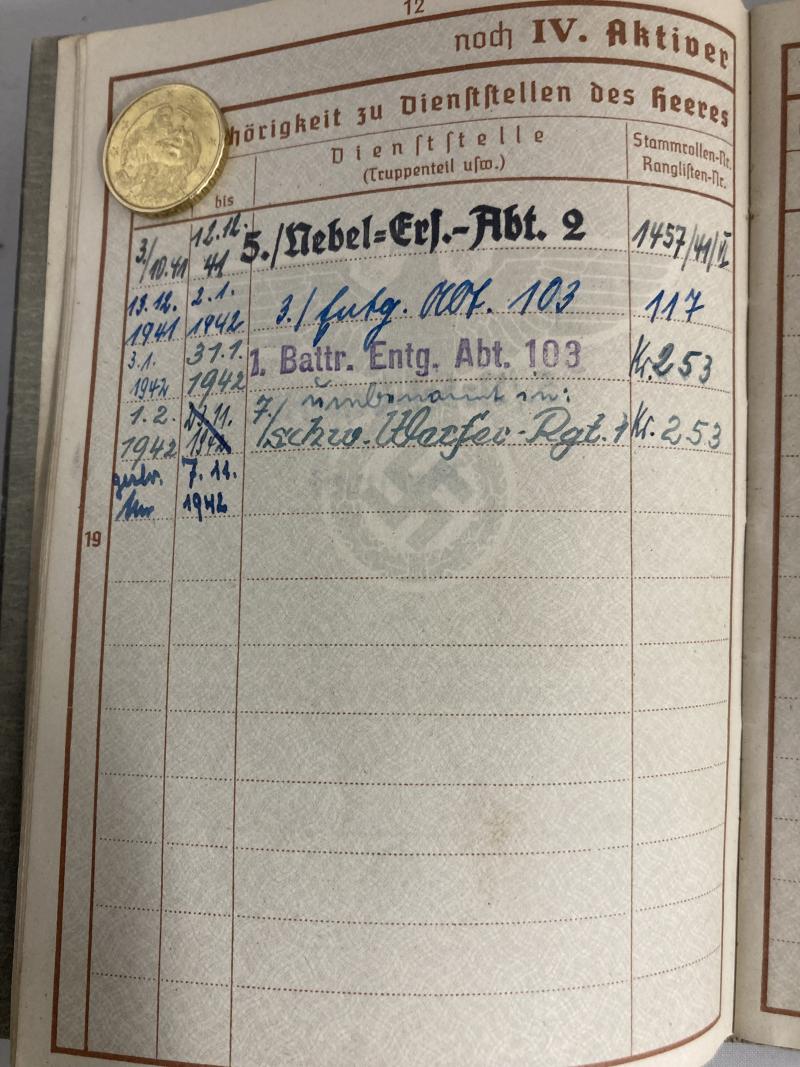 12
noch IV. Aktiver
hörigkeit zu Dienststellen des Heeres
bis
Dienststelle
(Truppenteil usw.)
Stammrollen-Nr.
Ranglisten-Nr.
3./10.41 12.12.41 5./Nebel=Ers.-Abt. 2 1457/41/II
13.12.1941 2.1.1942 3./Entg. Abt. 103 117
3.1.1942 31.1.1942 1. Battr. Entg. Abt. 103 Kr. 253
umbenannt in:
1.2.1942 7./schw. Werfer-Rgt. Kr. 253
7.11.1942
19